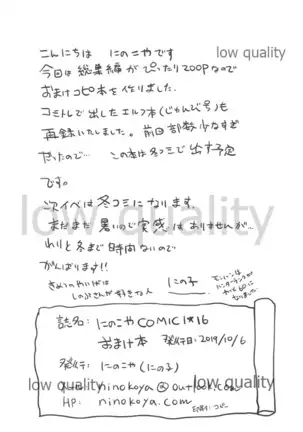 こんにちは にのこやです
今回は総集編がぴったり200Pなので
おまけコピ本を作りました。
コミトレで出したエルフ本(じゅんび号)も
再録いたしました。前回部数少なすぎ
たったので… この本は冬コミで出す予定
です。
次イベは冬コミになります。
まだまだ暑いので実感はありませんが…
わりと冬まで時間ないので
がんばります!!
にの子
誌名: にのこや COMIC1☆16
おまけ本 発行日: 2019/10/6
発行: にのこや(にの子)
ninokoya@outlook.com
HP: ninokoya.com
印刷: コピー
low quality
low quality
low quality
low quality